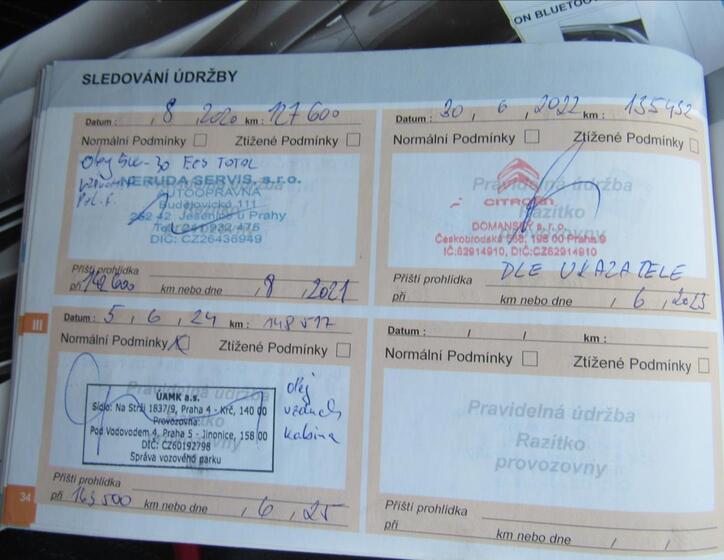 ON BLUETOO
SLEDOVÁNÍ ÚDRŽBY
Datum : , 8 , 2020 km : 127 600
Normální Podmínky Ztížené Podmínky
Olej 5W-30 ECS TOTAL
NERUDA SERVIS, s.r.o.
AUTOOPRAVNA
Budějovická 111
252 42 Jesenice u Prahy
DIČ: CZ26436949
Příští prohlídka
při 142 600 km nebo dne , 8 , 2021
Datum : 30 , 6 , 2022 km : 135432
Normální Podmínky Ztížené Podmínky
Pravidelná údržba
CITROËN
Razítko
DOMANSKÝ s.r.o.
Českobrodská 568, 198 00 Praha 9
provozovny
IČ:62914910, DIČ:CZ62914910
Příští prohlídka DLE UKAZATELE
při km nebo dne , 6 , 2023
III
Datum : 5 , 6 , 24 km : 148 517
Normální Podmínky Ztížené Podmínky
Pravidelná údržba
ÚAMK a.s.
Sídlo: Na Strži 1837/9, Praha 4 - Krč, 140 00
Razítko
Provozovna:
Pod Vodovodem 4, Praha 5 - Jinonice, 158 00
DIČ: CZ60192798
provozovny
Správa vozového parku
olej
vzduch
kabina
Příští prohlídka
při 163 500 km nebo dne , 6 , 25
34
Datum : / / km :
Normální Podmínky Ztížené Podmínky
Pravidelná údržba
Razítko
provozovny
Příští prohlídka
při km nebo dne / /